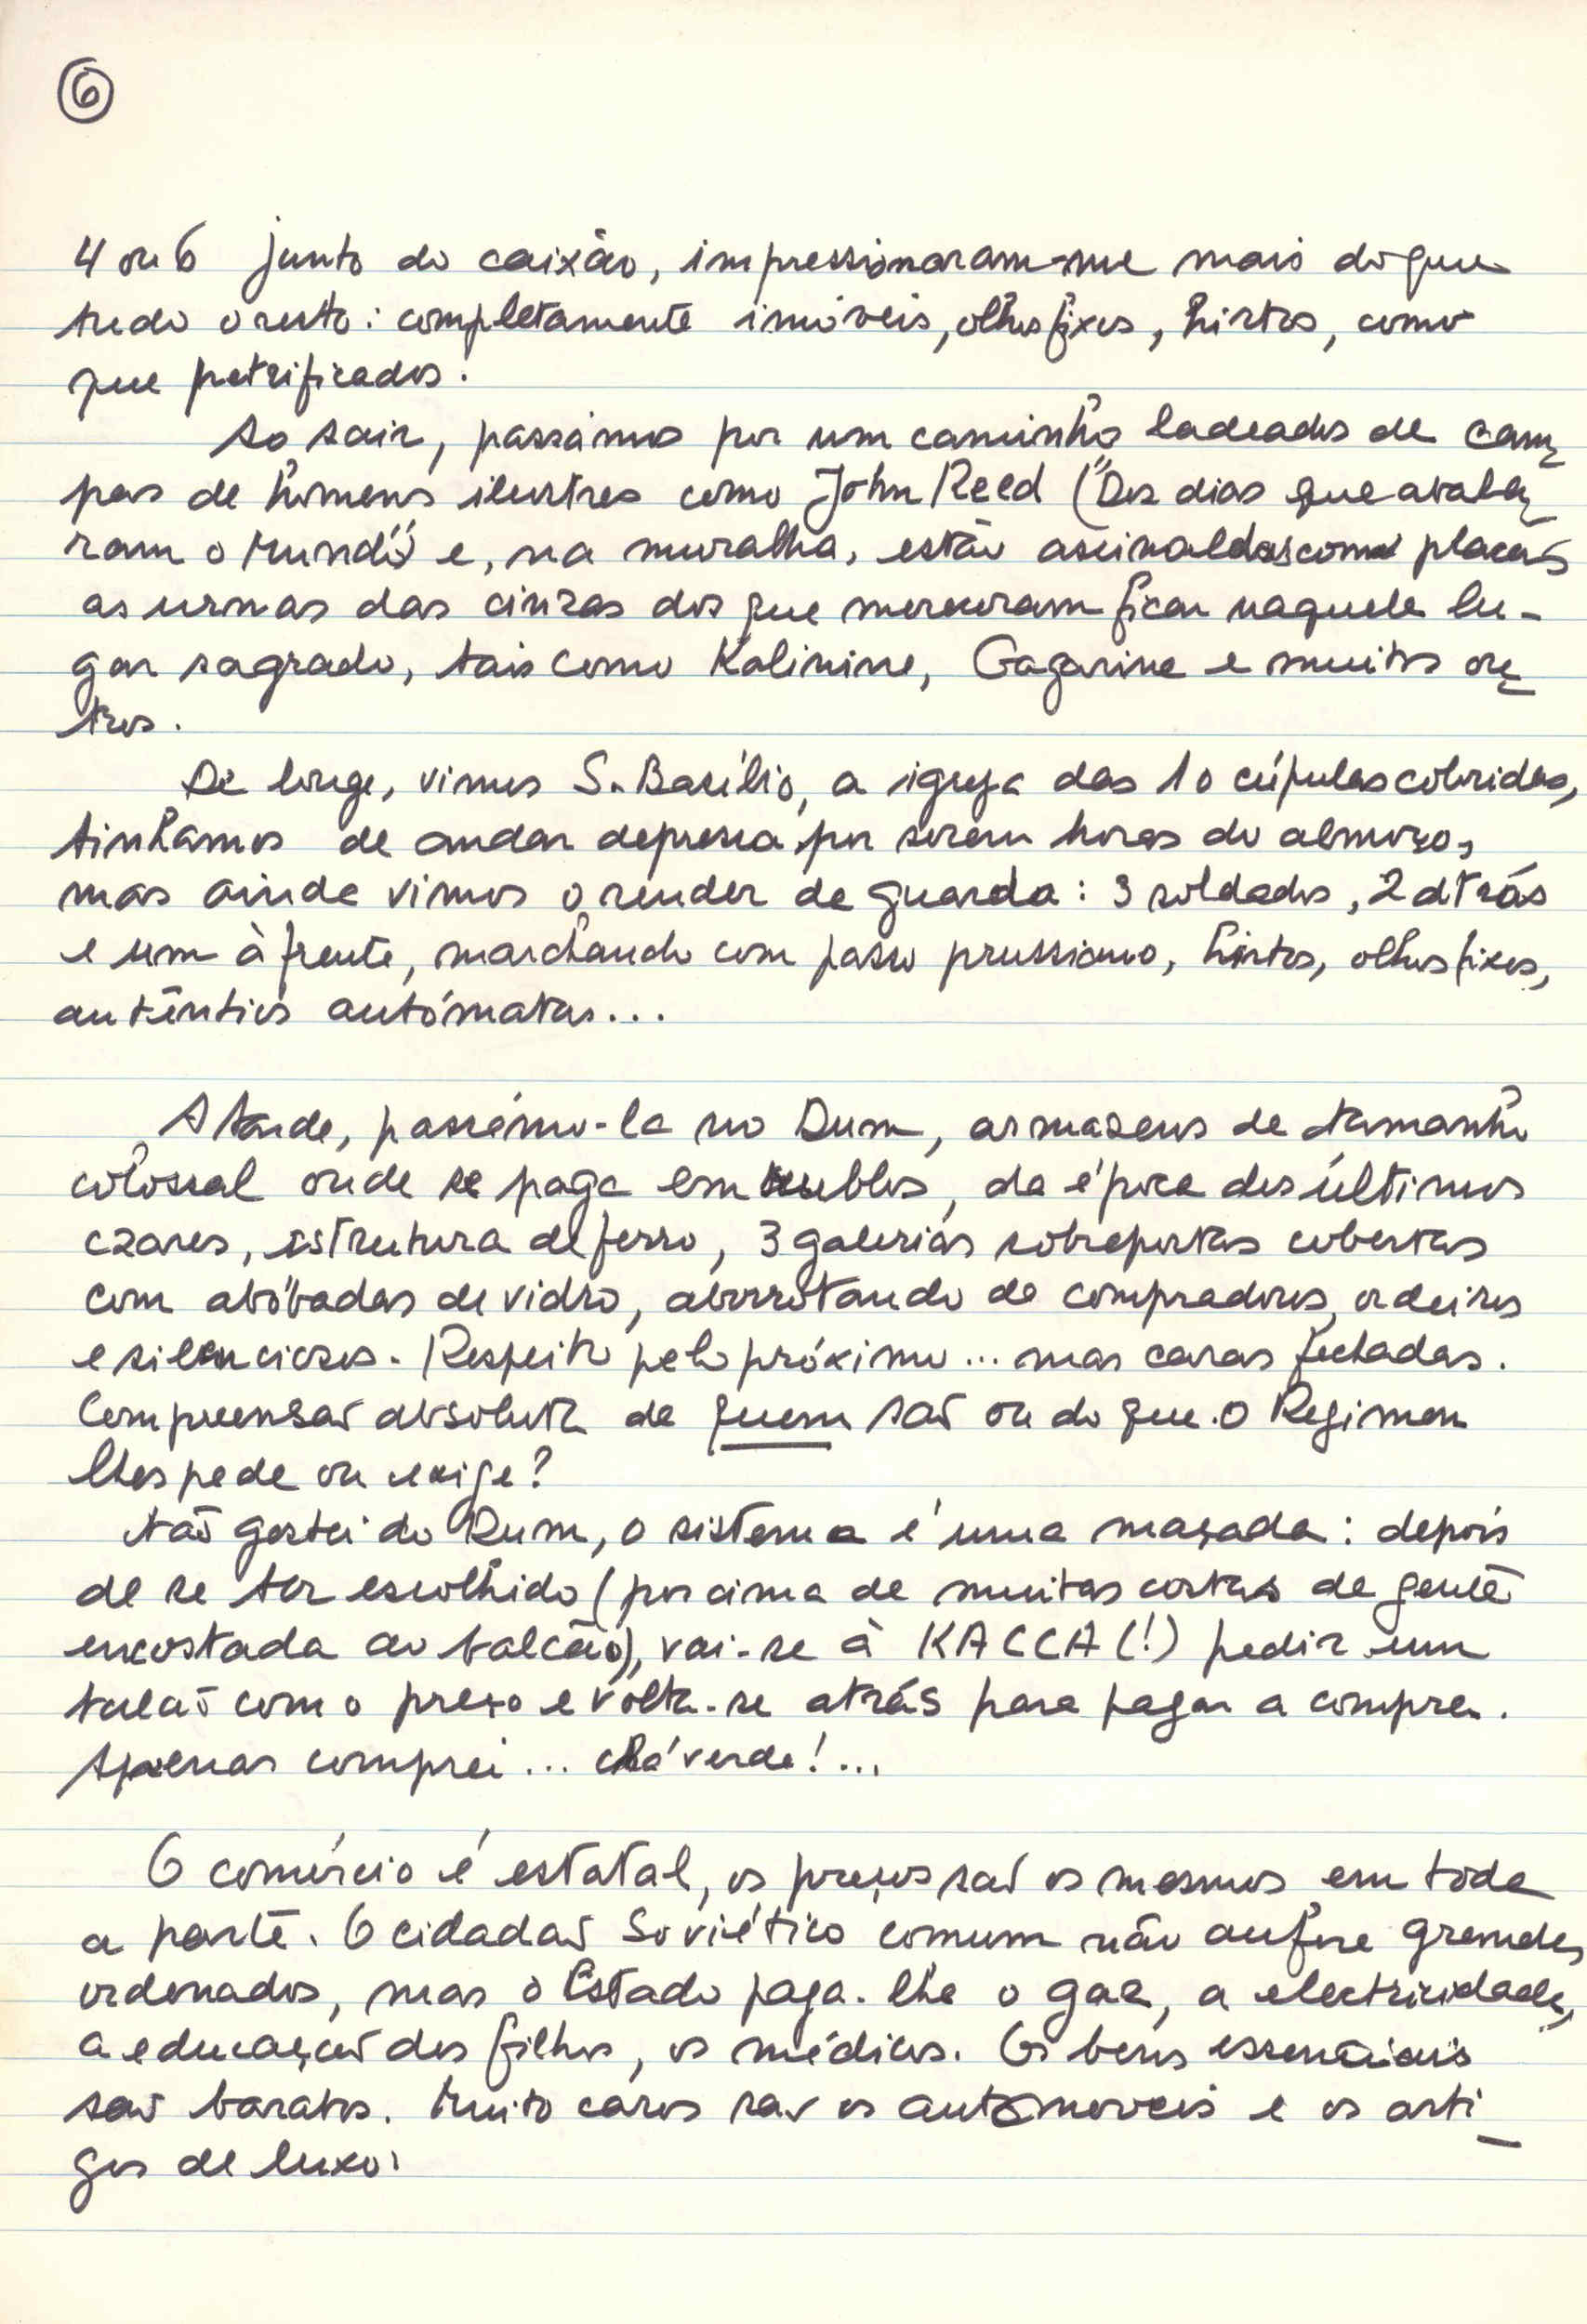 6
4 ou 6 junto do caixão, impressionaram-me mais do que
tudo o resto: completamente imóveis, olhos fixos, hirtos, como
que petrificados.
Ao sair, passámos por um caminho ladeados de cam-
pas de homens ilustres como John Reed ("Dez dias que abala-
ram o Mundo") e, na muralha, estão assinaldas com placas
as urnas das cinzas dos que mereceram ficar naquele lu-
gar sagrado, tais como Kalinine, Gagarine e muitos ou-
tros.
De longe, vimos S. Basílio, a igreja das 10 cúpulas coloridas,
tinhamos de andar depressa por serem horas do almoço,
mas ainda vimos o render de guarda: 3 soldados, 2 atrás
e um à frente, marchando com passo prussiano, hirtos, olhos fixos,
autênticos autómatas...
A tarde, passámo-la no Dum, armazens de tamanho
colossal onde se paga em rublos, da época dos últimos
czares, estrutura de ferro, 3 galerias sobrepostas cobertas
com abóbadas de vidro, aborrotando de compradores, ordeiros
e silenciosos. Respeito pelo próximo... mas caras fechadas.
Compreensão absoluta de quem são ou do que o Regimen
lhes pede ou exige?
Não gostei do Dum, o sistema é uma maçada: depois
de se ter escolhido (por cima de muitas costas de gente
encostada ao balcão), vai-se à KACCA (!) pedir um
talão com o preço e volta-se atrás para pagar a compra.
Apenas comprei... chá verde!...
O comércio é estatal, os preços são os mesmos em toda
a parte. O cidadão Soviético comum não aufere grandes
ordenados, mas o Estado paga-lhe o gaz, a electricidade,
a educação dos filhos, os médicos. Os bens essenciais
são baratos. Muito caros são os automoveis e os arti-
gos de luxo.